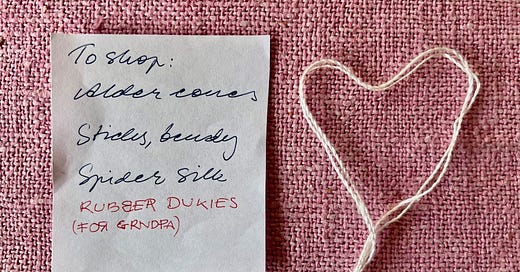 To shop:
Alder cones
Sticks, bendy
Spider silk
RUBBER DUKIES
(FOR GRNDPA)